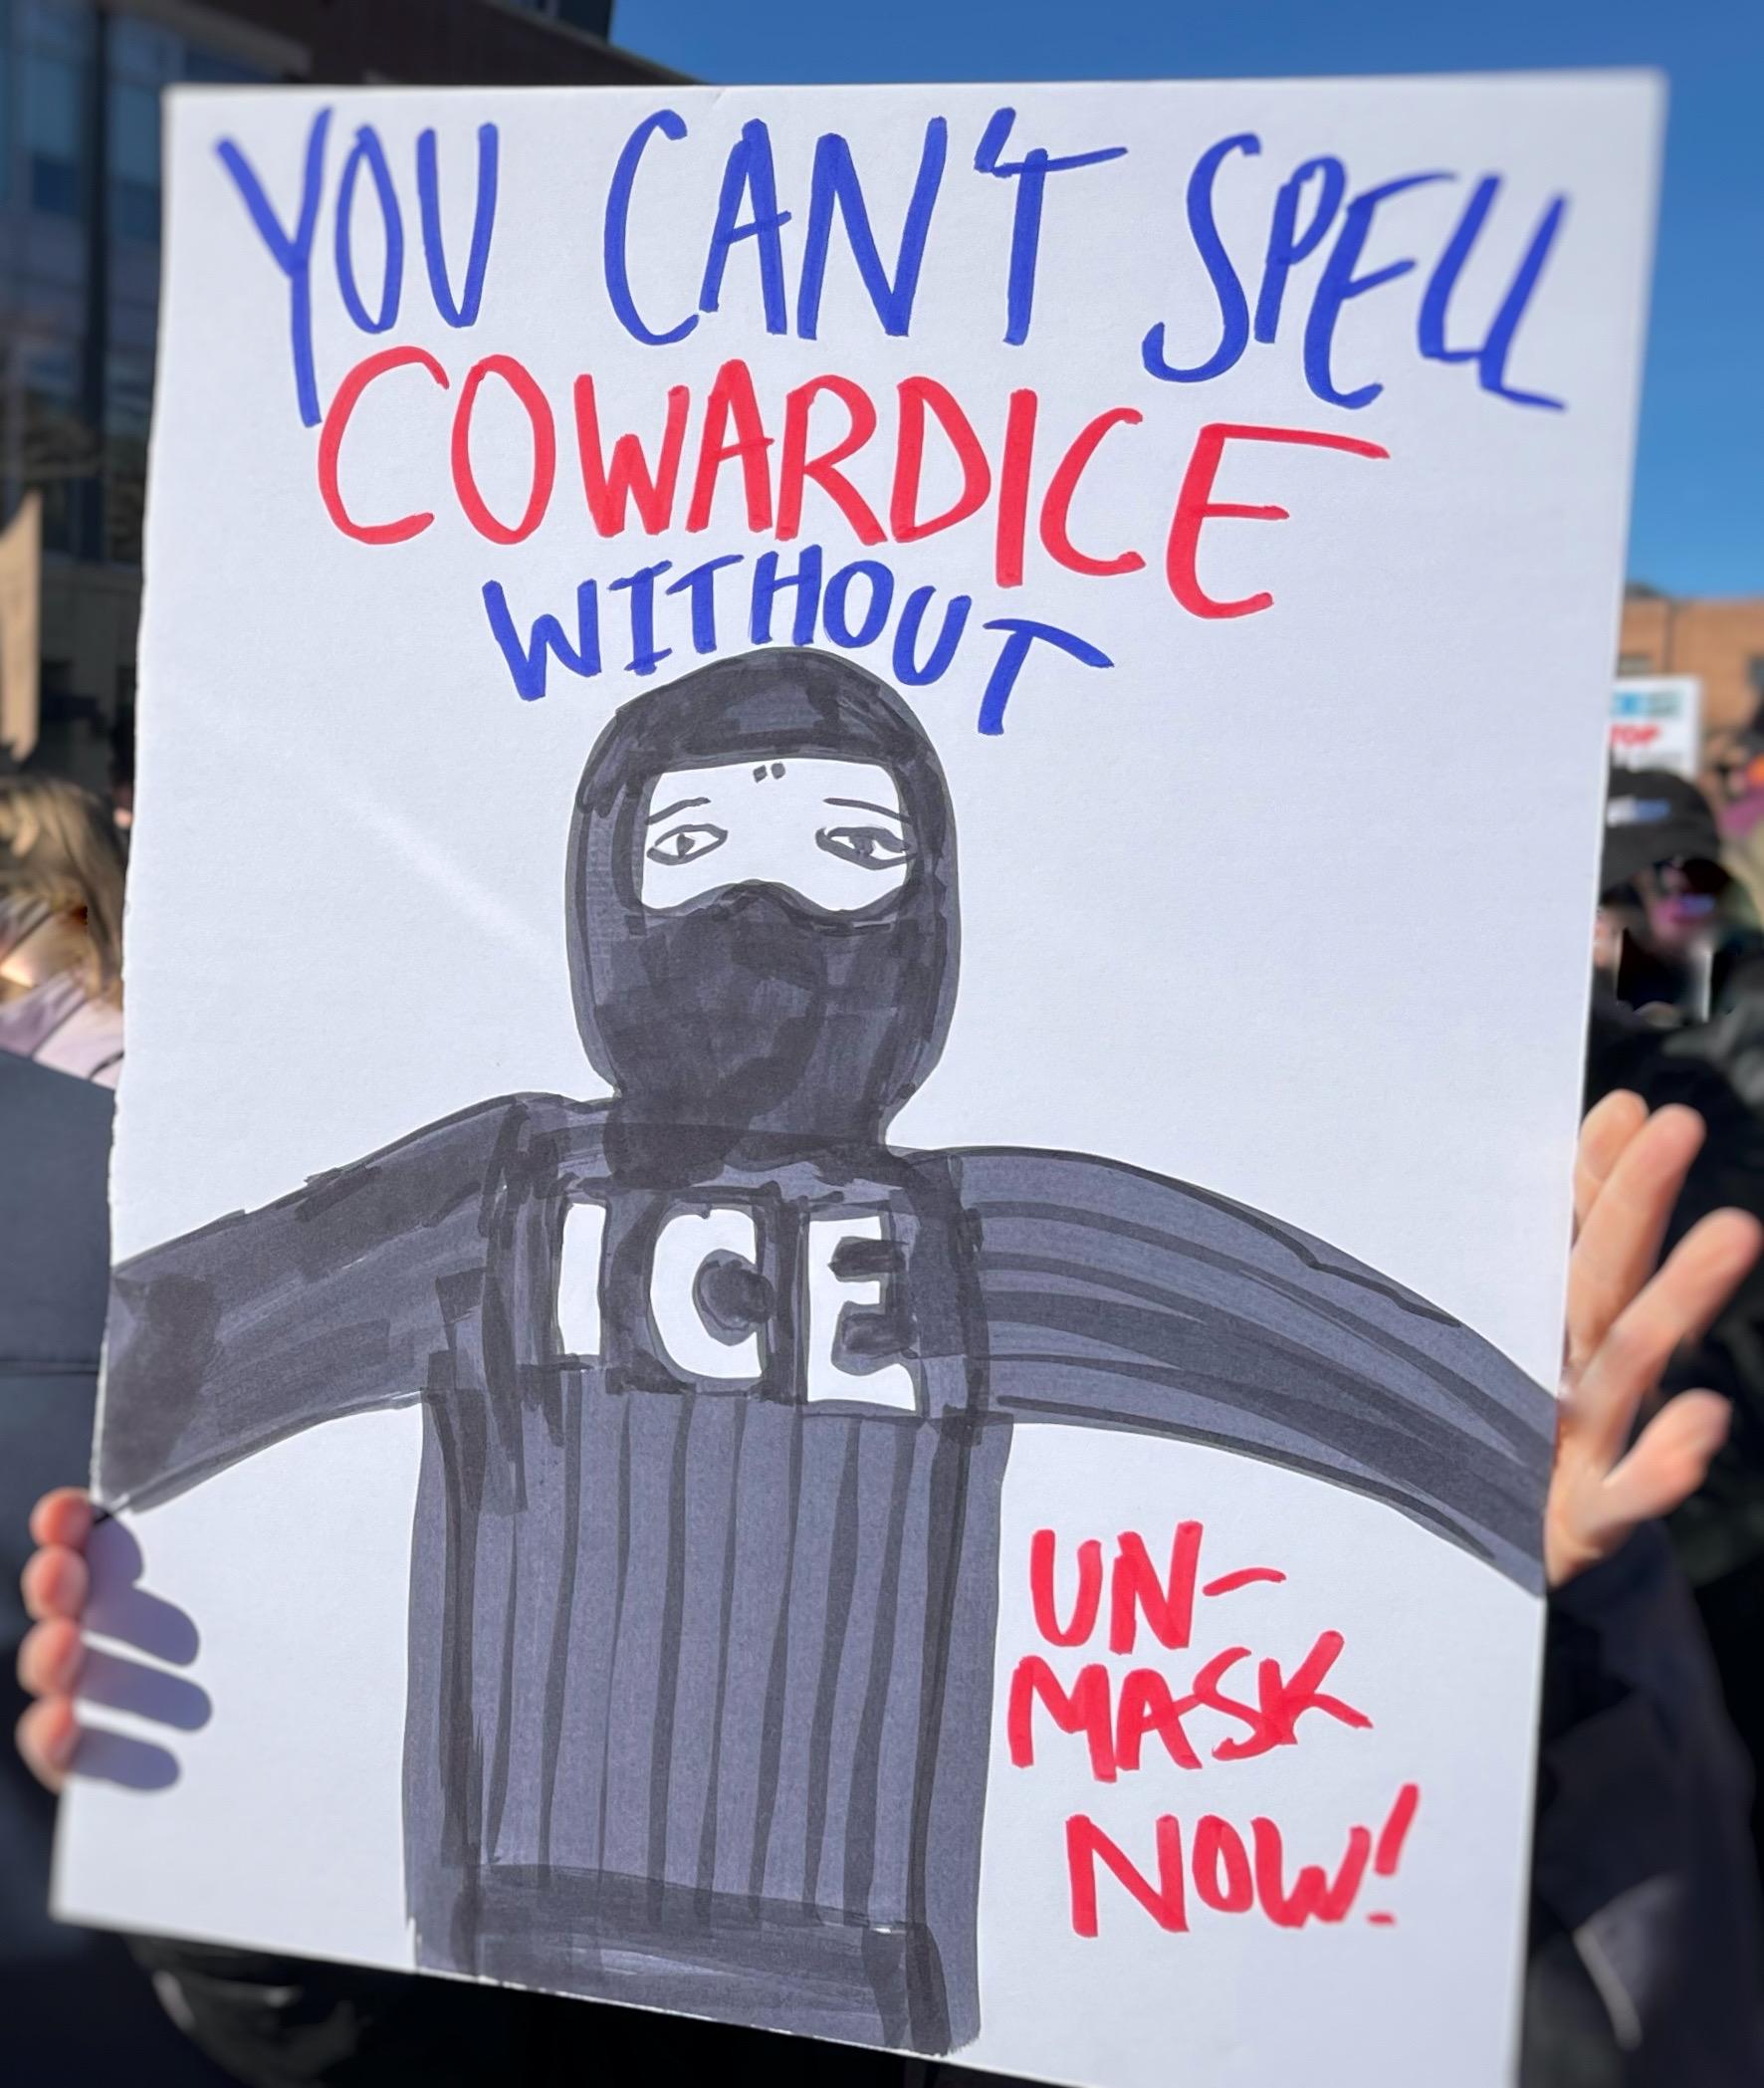 YOU CAN'T SPELL
COWARDICE
WITHOUT
ICE
UN-
MASK
NOW!